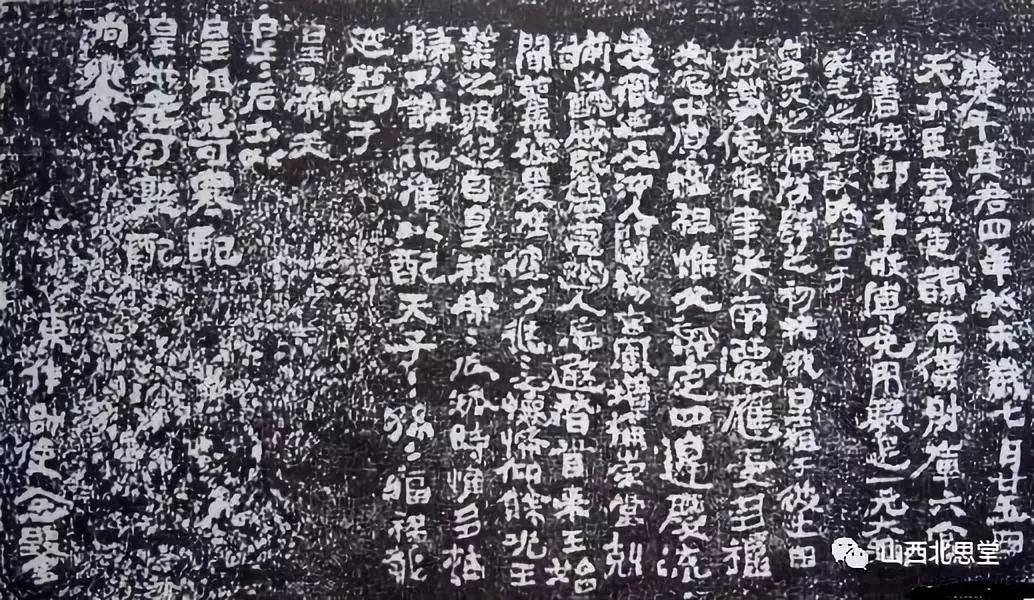 維太平真君四年癸未歲七月廿五日
天子臣燾使謁者僕射庫六官
中書侍郎李敞傅㝹用駿足一元大武
柔毛之牲敢昭告于
皇天之神啓辟之初祐我皇祖于彼土田
歷載億年聿來南遷應受多福
光宅中原惟祖惟父拓定四邊慶流
後胤延及沖人闡揚玄風增構崇堂剋
揃凶醜威暨四荒幽人忘遐稽首來王始
聞舊墟爰在彼方悠〻之懷希仰餘光王
業之興起自皇祖綿〻瓜瓞時惟多祜
歸以謝施推以配天子〻孫〻福祿永
延薦于
皇〻帝天
皇〻后土以
皇祖先可寒配
皇妣先可敦配
尚饗
東作帥使念鑿
山西北思堂